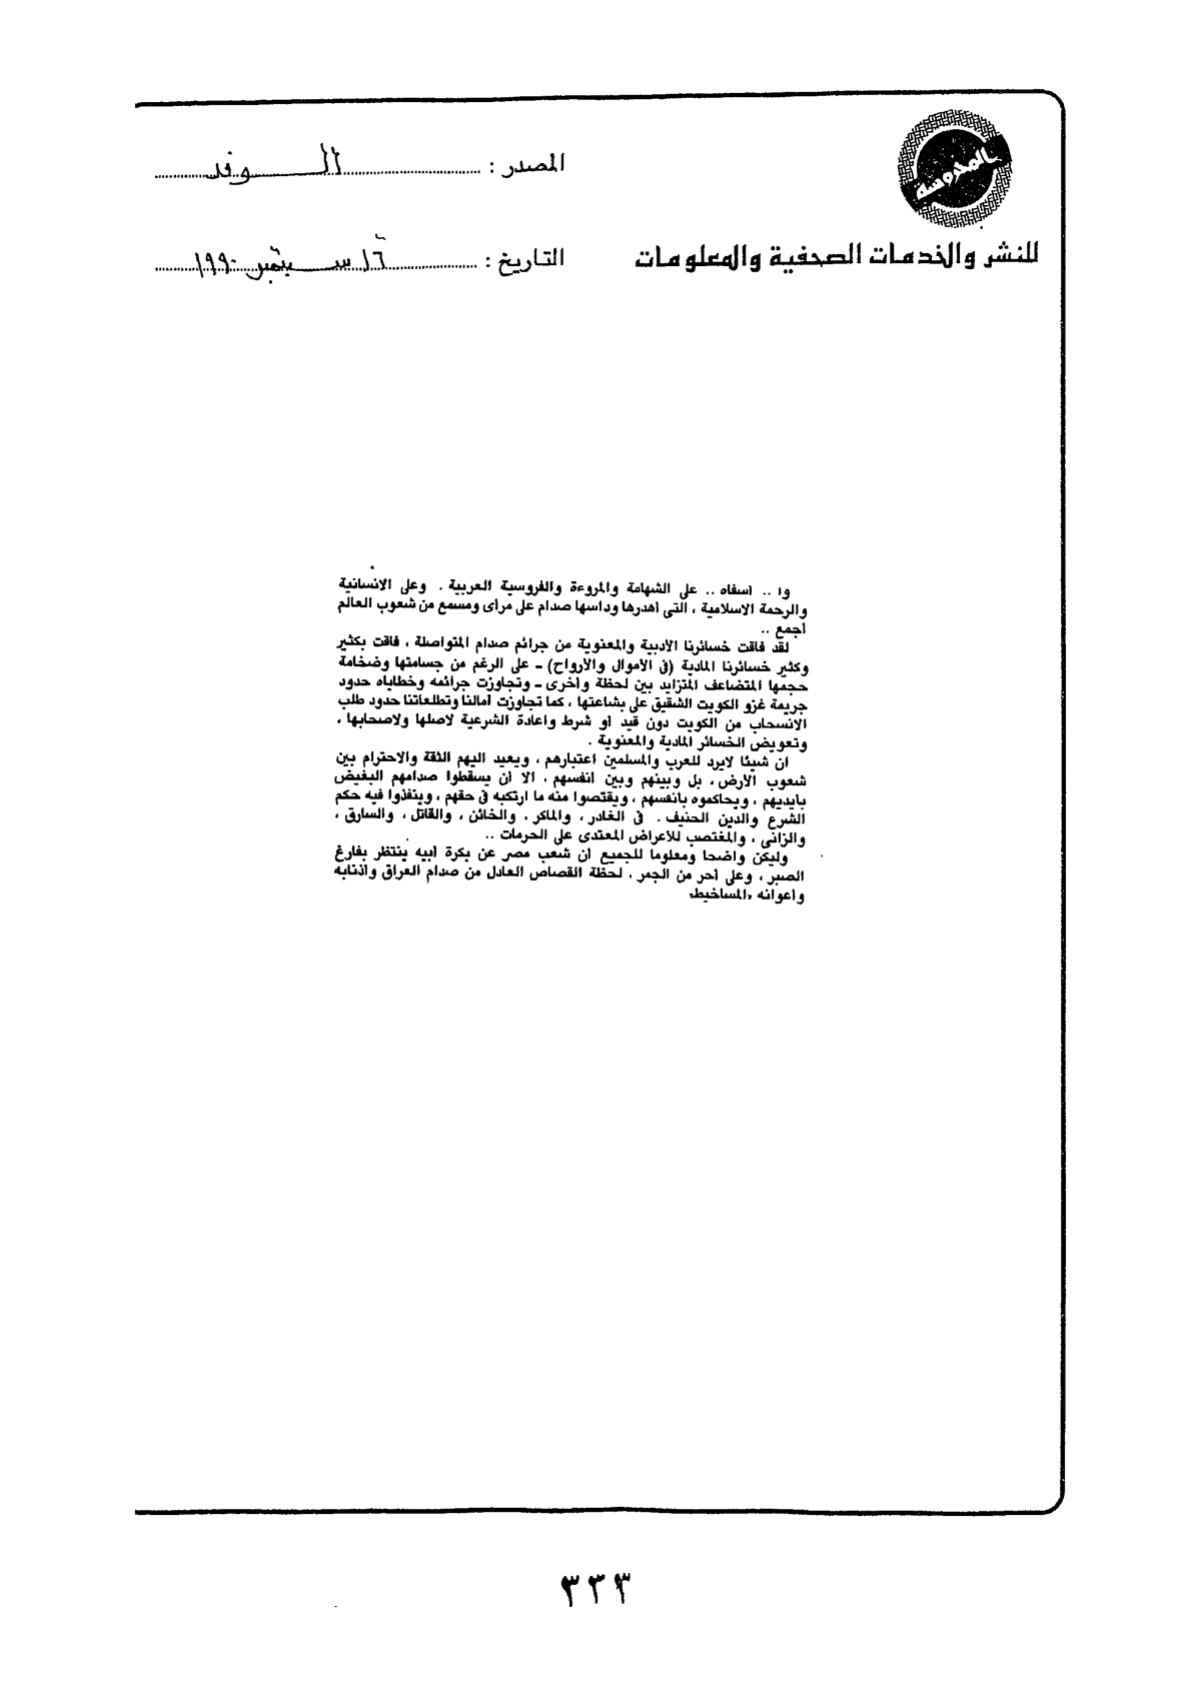 المحروسة
للنشر والخدمات الصحفية والمعلومات
المصدر : الـــوفد
التاريخ : ١٦ سبتمبر ١٩٩٠
وا .. أسفاه .. على الشهامة والمروءة والفروسية العربية . وعلى الانسانية
والرحمة الاسلامية ، التى اهدرها وداسها صدام على مرأى ومسمع من شعوب العالم
أجمع ..
لقد فاقت خسائرنا الأدبية والمعنوية من جرائم صدام المتواصلة ، فاقت بكثير
وكثير خسائرنا المادية (فى الأموال والأرواح) ـ على الرغم من جسامتها وضخامة
حجمها المتضاعف المتزايد بين لحظة وأخرى ـ وتجاوزت جرائمه وخطاياه حدود
جريمة غزو الكويت الشقيق على بشاعتها ، كما تجاوزت آمالنا وتطلعاتنا حدود طلب
الانسحاب من الكويت دون قيد أو شرط واعادة الشرعية لاصلها ولاصحابها ،
وتعويض الخسائر المادية والمعنوية .
ان شيئا لايرد للعرب والمسلمين اعتبارهم ، ويعيد اليهم الثقة والاحترام بين
شعوب الأرض ، بل وبينهم وبين انفسهم ، الا ان يسقطوا صدامهم البغيض
بايديهم ، ويحاكموه بانفسهم ، ويقتصوا منه ما ارتكبه فى حقهم ، وينفذوا فيه حكم
الشرع والدين الحنيف . فى الغادر ، والماكر . والخائن ، والقاتل ، والسارق ،
والزانى ، والمغتصب للأعراض المعتدى على الحرمات ..
وليكن واضحا ومعلوما للجميع ان شعب مصر عن بكرة أبيه ينتظر بفارغ
الصبر ، وعلى أحر من الجمر . لحظة القصاص العادل من صدام العراق وأذنابه
وأعوانه «المساخيط»
٣٣٣